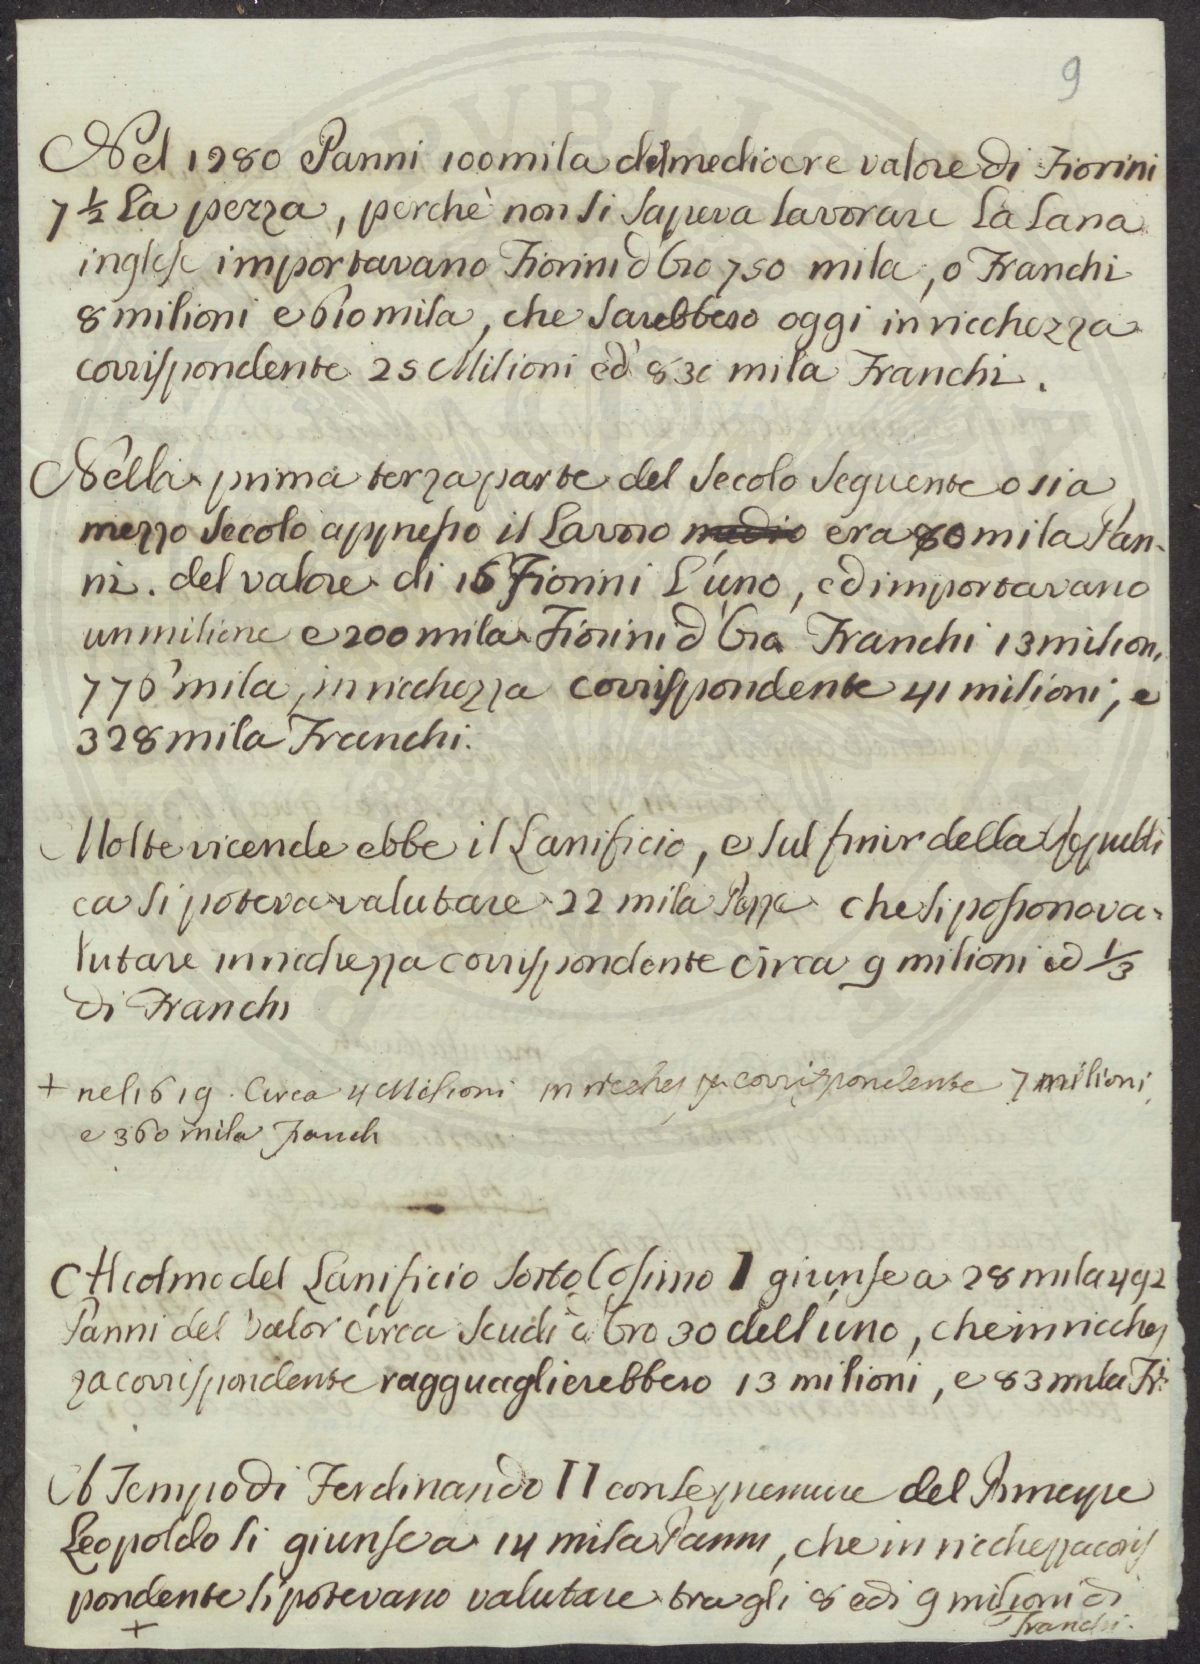 9
Nel 1280 Panni 100mila del mediocre valore di Fiorini
7 ½ La pezza, perchè non si sapeva lavorare la lana
inglese importavano Fiorini d'Oro 750 mila, o Franchi
8 milioni e 610 mila, che sarebbero oggi in ricchezza
corrispondente 25 Milioni ed 830 mila Franchi.
Nella prima terza parte del secolo seguente o sia
mezzo secolo appresso il Lavoro medio era 80 mila Pan-
ni. del valore di 16 Fiorini L'uno, ed importavano
un milione e 200 mila Fiorini d'Oro Franchi 13 milion.
776 mila, in ricchezza corrispondente 41 milioni, e
328 mila Franchi.
Molte vicende ebbe il Lanificio, e sul finir della Republi
ca si poteva valutare 22 mila Pezze che si possono va-
lutare in ricchezza corrispondente circa 9 milioni ed ⅓
di Franchi
+ nel 1619. Circa 4 Milioni in ricchezza corrispondente 7 milioni
e 360 mila Franch
Al colmo del Lanificio sotto Cosimo I giunse a 28 mila 492
Panni del valor circa Scudi d'Oro 30 dell'uno, che in ricchez
za corrispondente ragguaglierebbero 13 milioni, e 83 mila Fr.
A Tempo di Ferdinando II con le premure del Principe
Leopoldo si giunse a 14 mila Panni, che in ricchezza corris
pondente si potevano valutare tra gli 8 ed i 9 milioni di
Franchi.
+